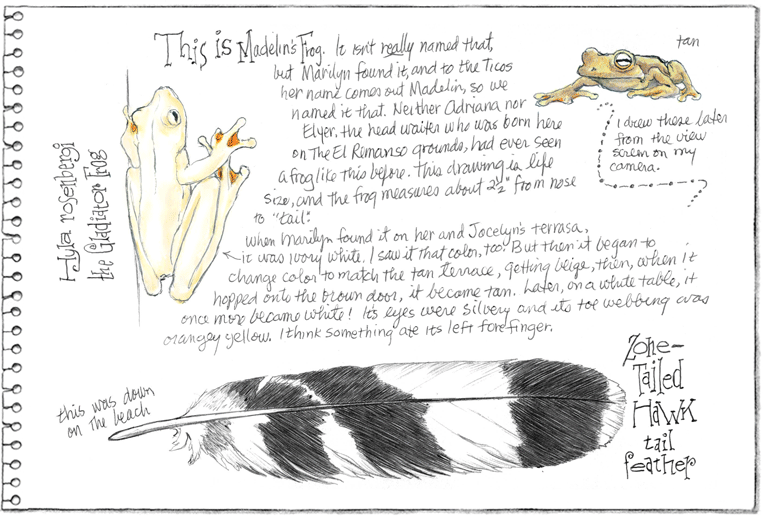 This is Madelin's Frog. It isn't really named that,
but Marilyn found it, and to the Ticos
her name comes out Madelin, so we
named it that. Neither Adriana nor
Elyer, the head waiter who was born here
on The El Remanso grounds, had ever seen
a frog like this before. This drawing is life
size, and the frog measures about 2½" from nose
to "tail".
When Marilyn found it on her and Jocelyn's terrasa,
it was ivory white. I saw it that color, too. But then it began to
change color to match the tan terrace, getting beige, then, when it
hopped onto the brown door, it became tan. Later, on a white table, it
once more became white! It's eyes were silvery and its toe webbing was
orangey yellow. I think something ate its left forefinger.
tan
I drew these later
from the view
screen on my
camera.
Hyla rosenbergi
the Gladiator Frog
this was down
on the beach
Zone-
Tailed
Hawk
tail
feather